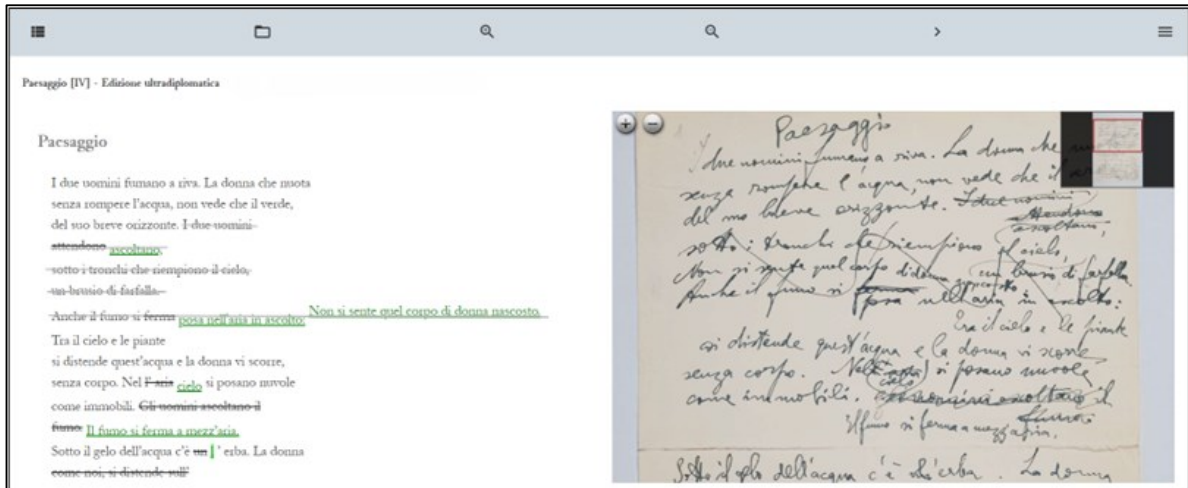 Paesaggio [IV] - Edizione ultradiplomatica
Paesaggio
I due uomini fumano a riva. La donna che nuota
senza rompere l'acqua, non vede che il verde,
del suo breve orizzonte. I due uomini
attendono ascoltano,
sotto i tronchi che riempiono il cielo,
un brusio di farfalla.
Anche il fumo si ferma posa nell'aria in ascolto: Non si sente quel corpo di donna nascosto.
Tra il cielo e le piante
si distende quest'acqua e la donna vi scorre,
senza corpo. Nel l' aria cielo si posano nuvole
come immobili. Gli uomini ascoltano il
fumo. Il fumo si ferma a mezz'aria.
Sotto il gelo dell'acqua c'è un l ' erba. La donna
come noi, si distende sull'
Paesaggio
I due uomini fumano a riva. La donna che
senza rompere l'acqua, non vede che il
del suo breve orizzonte. I due uomini
attendono
ascoltano,
sotto i tronchi che riempiono il cielo,
Non si sente quel corpo di donna nascosto un brusio di farfalla.
Anche il fumo si ferma posa nell'aria in ascolto:
Tra il cielo e le piante
si distende quest'acqua e la donna vi scorre
senza corpo. Nell'aria cielo si posano nuvole
come immobili. Gli uomini ascoltano il
fumo.
Il fumo si ferma a mezz'aria.
Sotto il gelo dell'acqua c'è l'erba. La donna